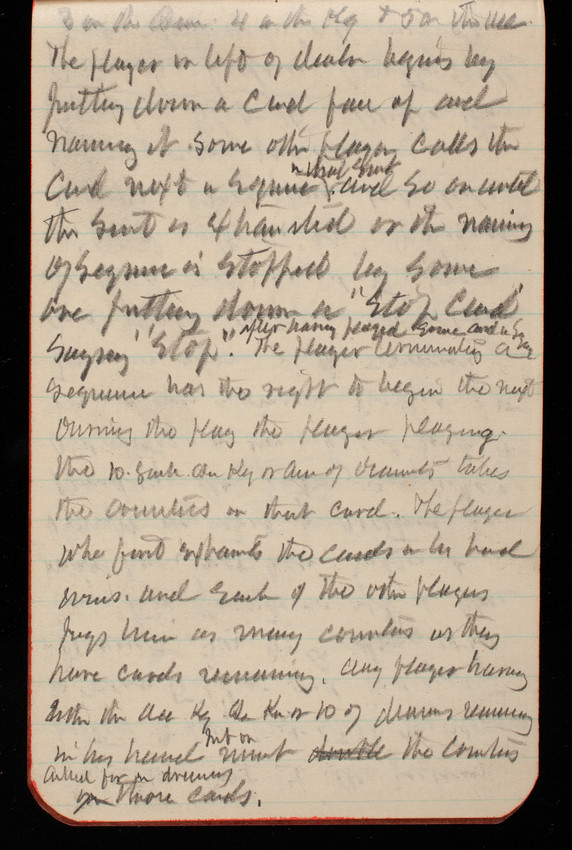 3 on the Queen. 4 on the Kg & 5 on the Ace.
The player on left of dealer begins by
putting down a Card face up and
naming it. Some other player calls the
in that Suit
Card next in Sequence and so on until
the Suit is Exhausted or the naming
of Sequence is Stopped by Some
one putting down a "Stop Card"
after having played Some card in Seq
Saying "Stop". The player terminating a
Sequence has the right to begin the next
During the play the player playing
the 10. Jack. Qu Kg or Ace of Diamonds takes
the Counters on that Card. The player
who first exhausts the cards in his hand
wins. and Each of the other players
pays him as many counters as they
have cards remaining. Any player having
Either the Ace Kg Qu Kn or 10 of diamonds remaining
put on
in his hand must double the Counters
Called for in
for those cards.